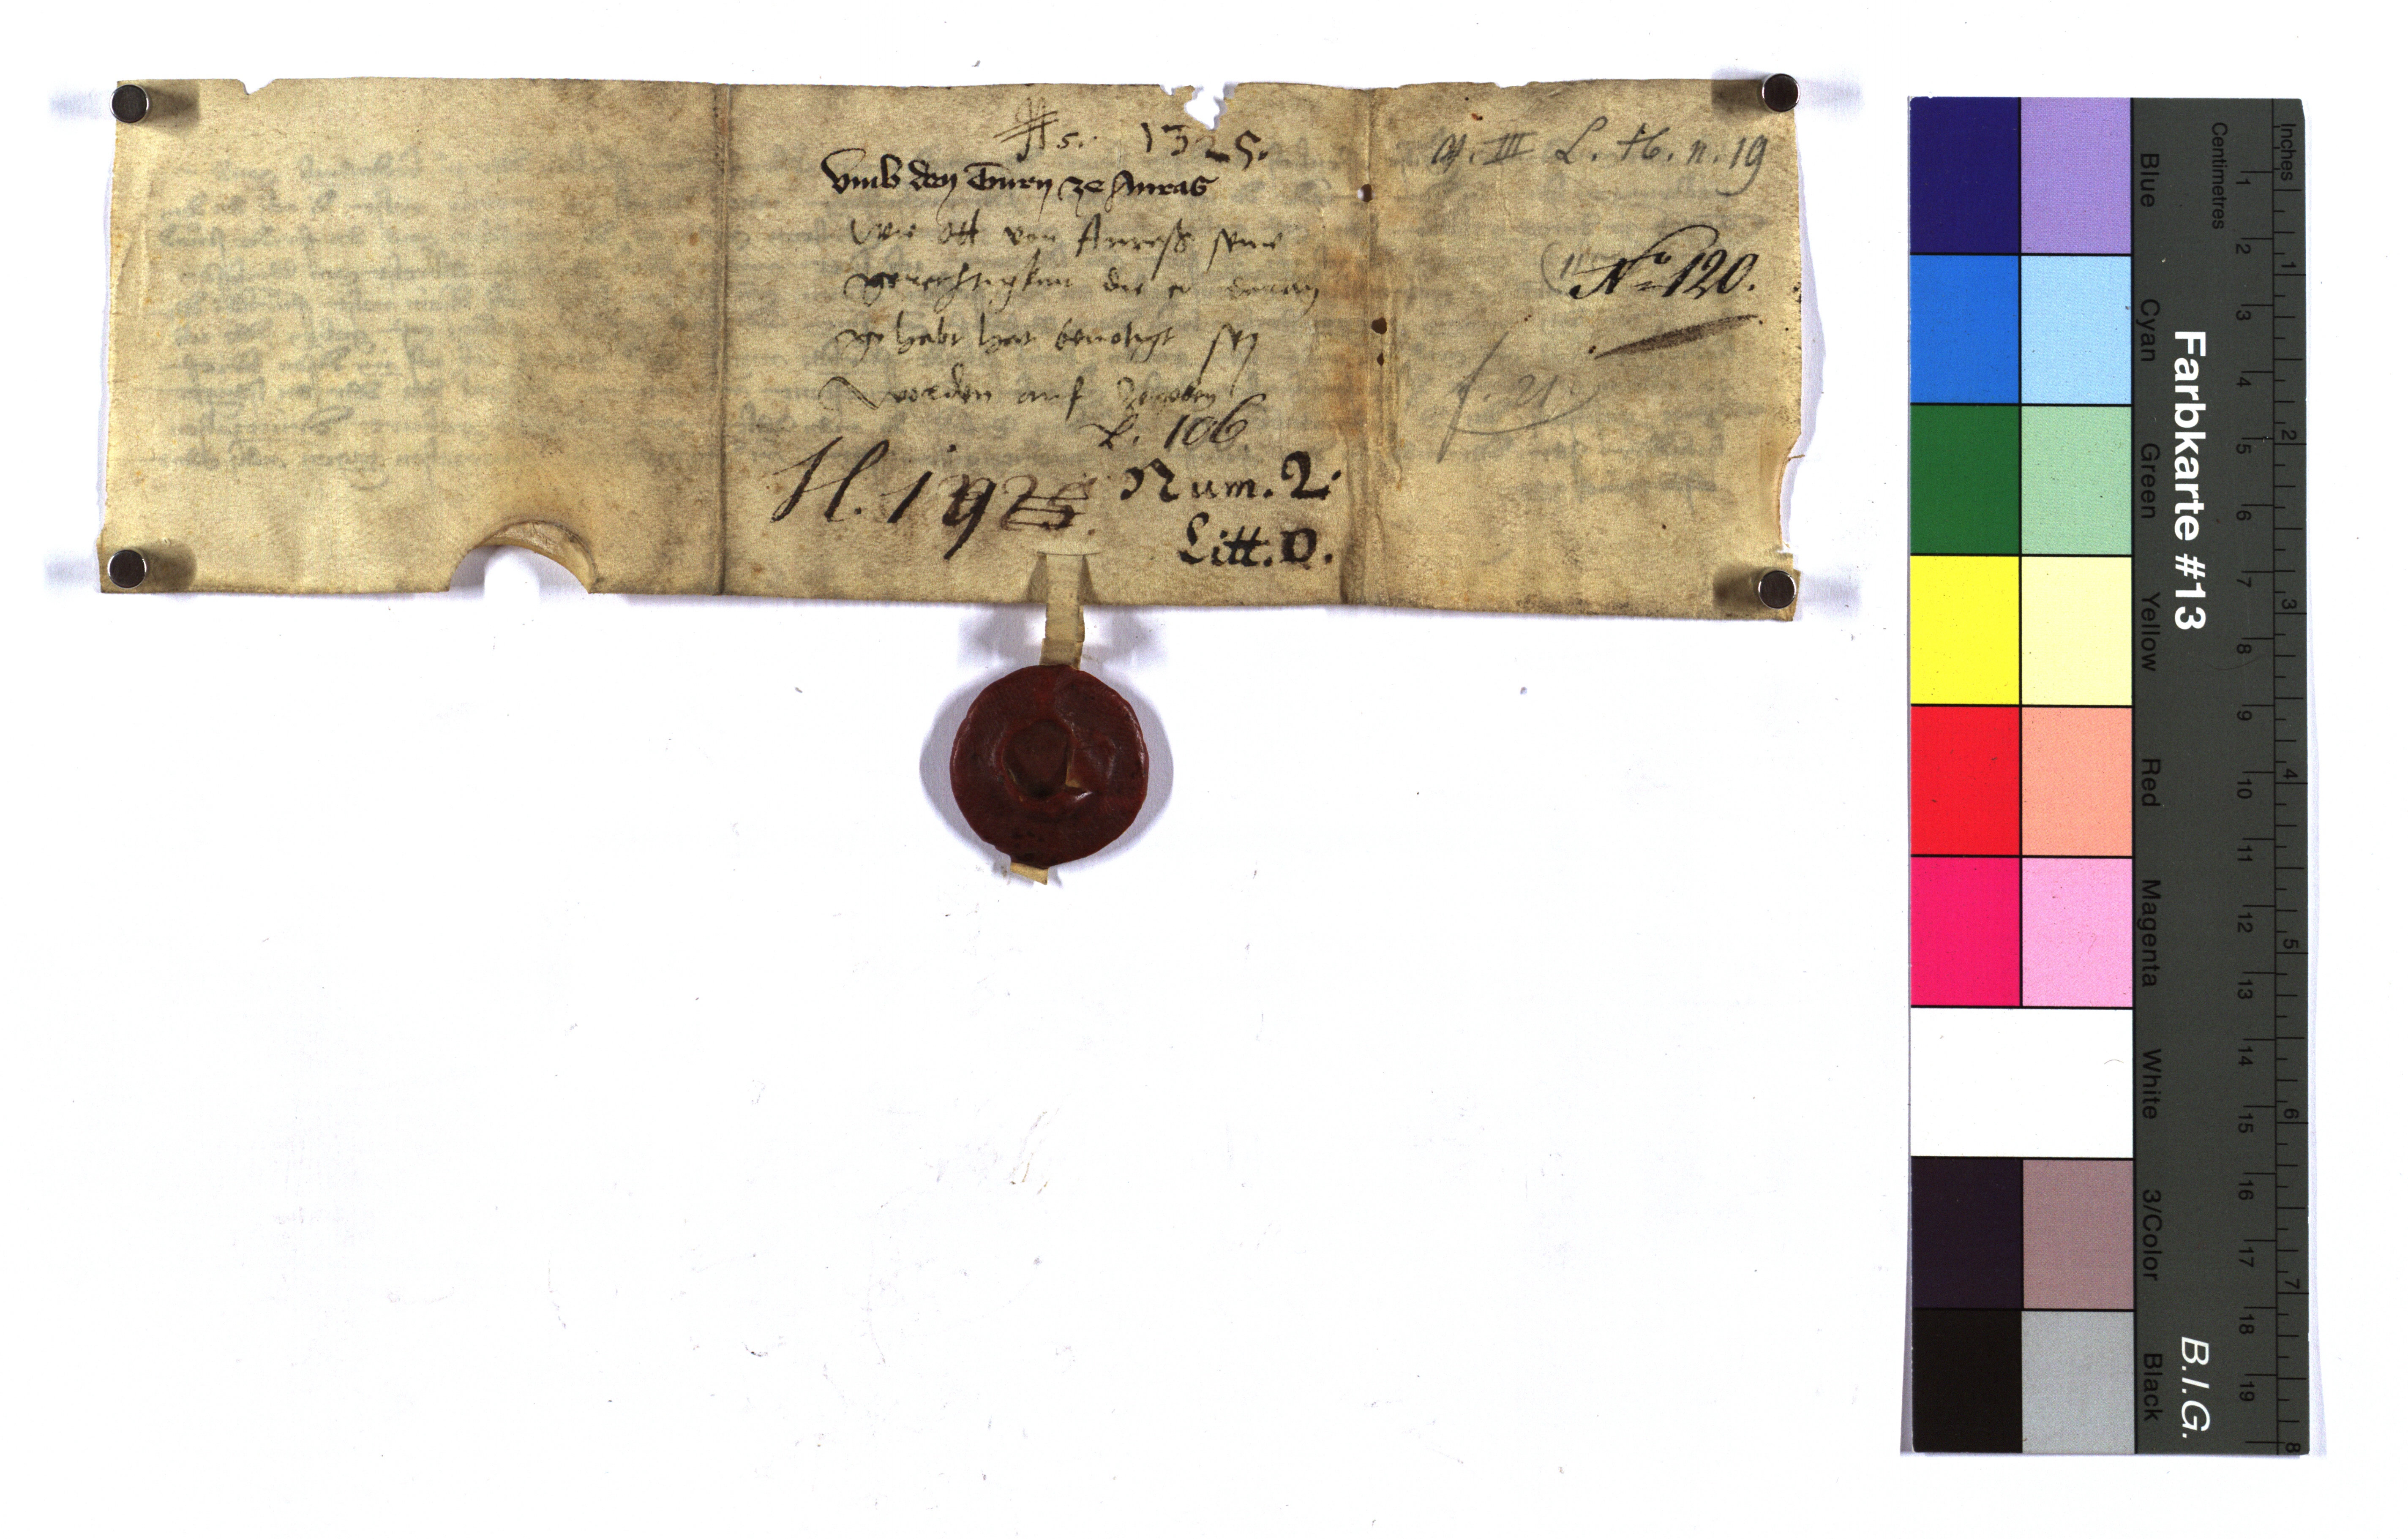 5. 1325.
Vmb den Turn ze Anras
Wie Ott von Anraß seine
gerechtigkait die er daran
gehabt hat benötigt sey
worden auf zegeben
L. 106.
H. 192
Num. 2.
Litt. D.
III L. H. n. 19
N° 120.
f. 21.
Farbkarte #13
B.I.G.
Centimetres
Inches
Blue
Cyan
Green
Yellow
Red
Magenta
White
3/Color
Black
1 2 3 4 5 6 7 8 9 10 11 12 13 14 15 16 17 18 19
1 2 3 4 5 6 7 8